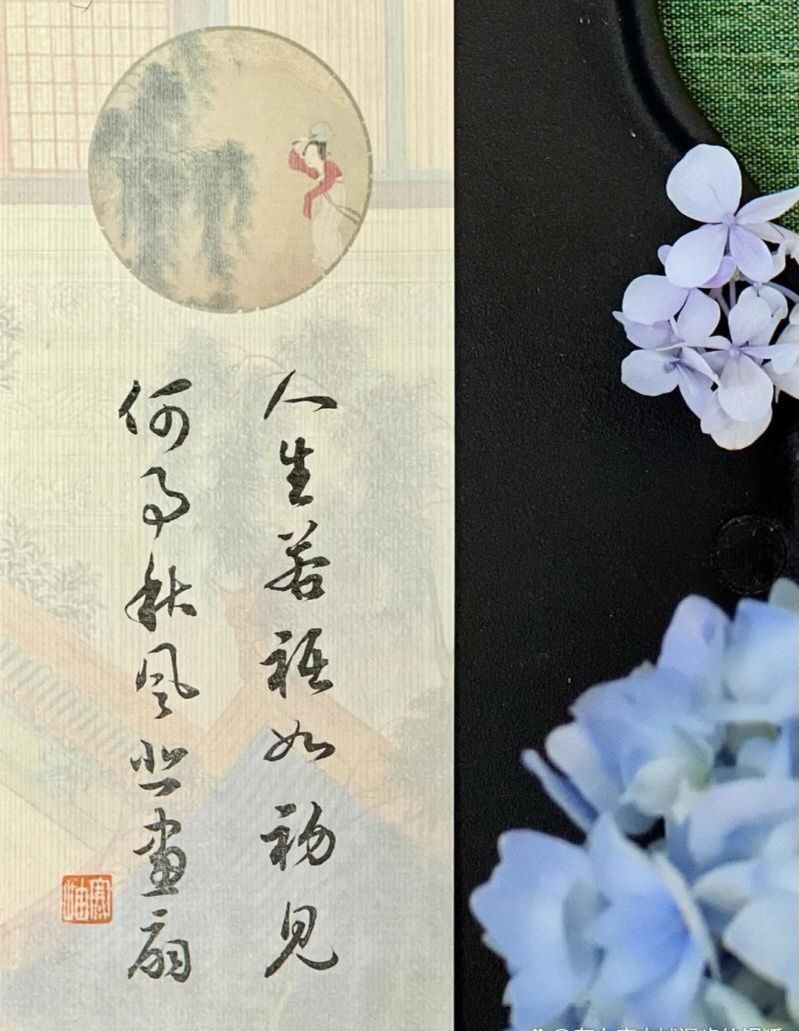 人生若祗如初见
何事秋风悲画扇